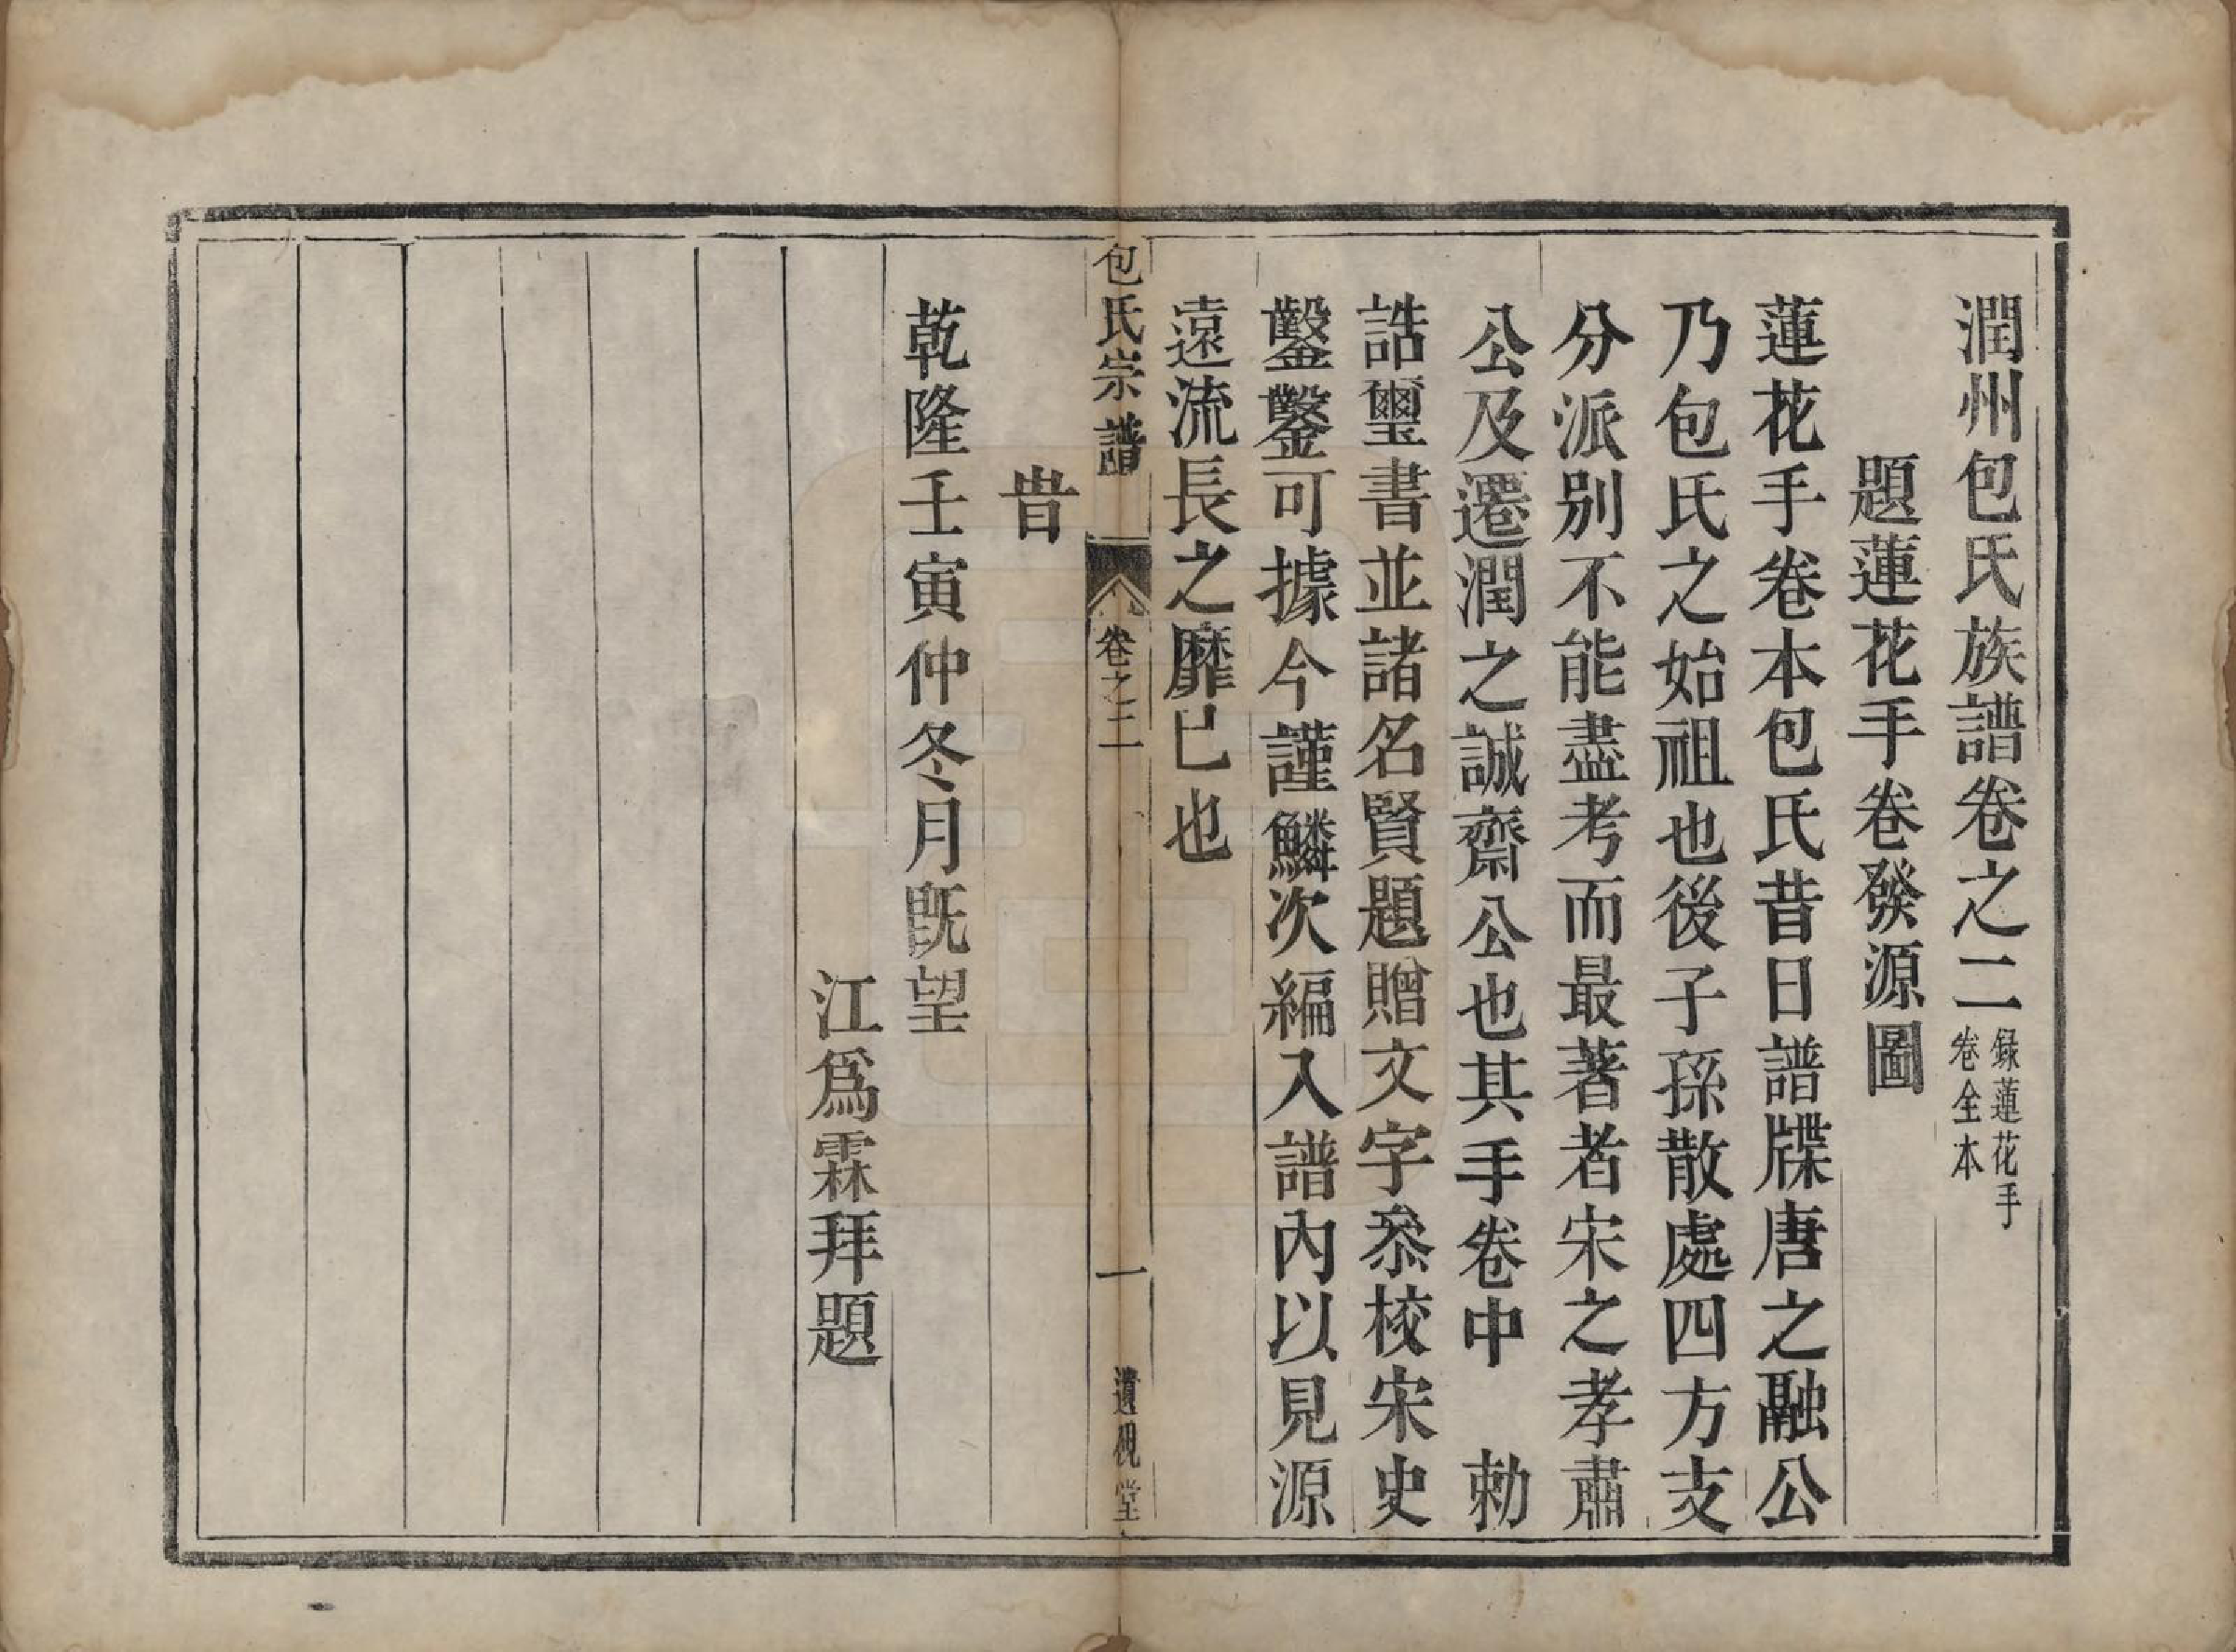 潤州包氏族譜卷之二 錄蓮花手卷全本
題蓮花手卷發源圖
蓮花手卷本包氏昔日譜牒唐之融公
乃包氏之始祖也後子孫散處四方支
分派別不能盡考而最著者宋之孝肅
公及遷潤之誠齋公也其手卷中 勅
誥璽書並諸名賢題贈文字叅校宋史
鑿鑿可據今謹鱗次編入譜內以見源
遠流長之靡已也
包氏宗譜 卷之二 一 遺硯堂
旹
乾隆壬寅仲冬月既望
江爲霖拜題